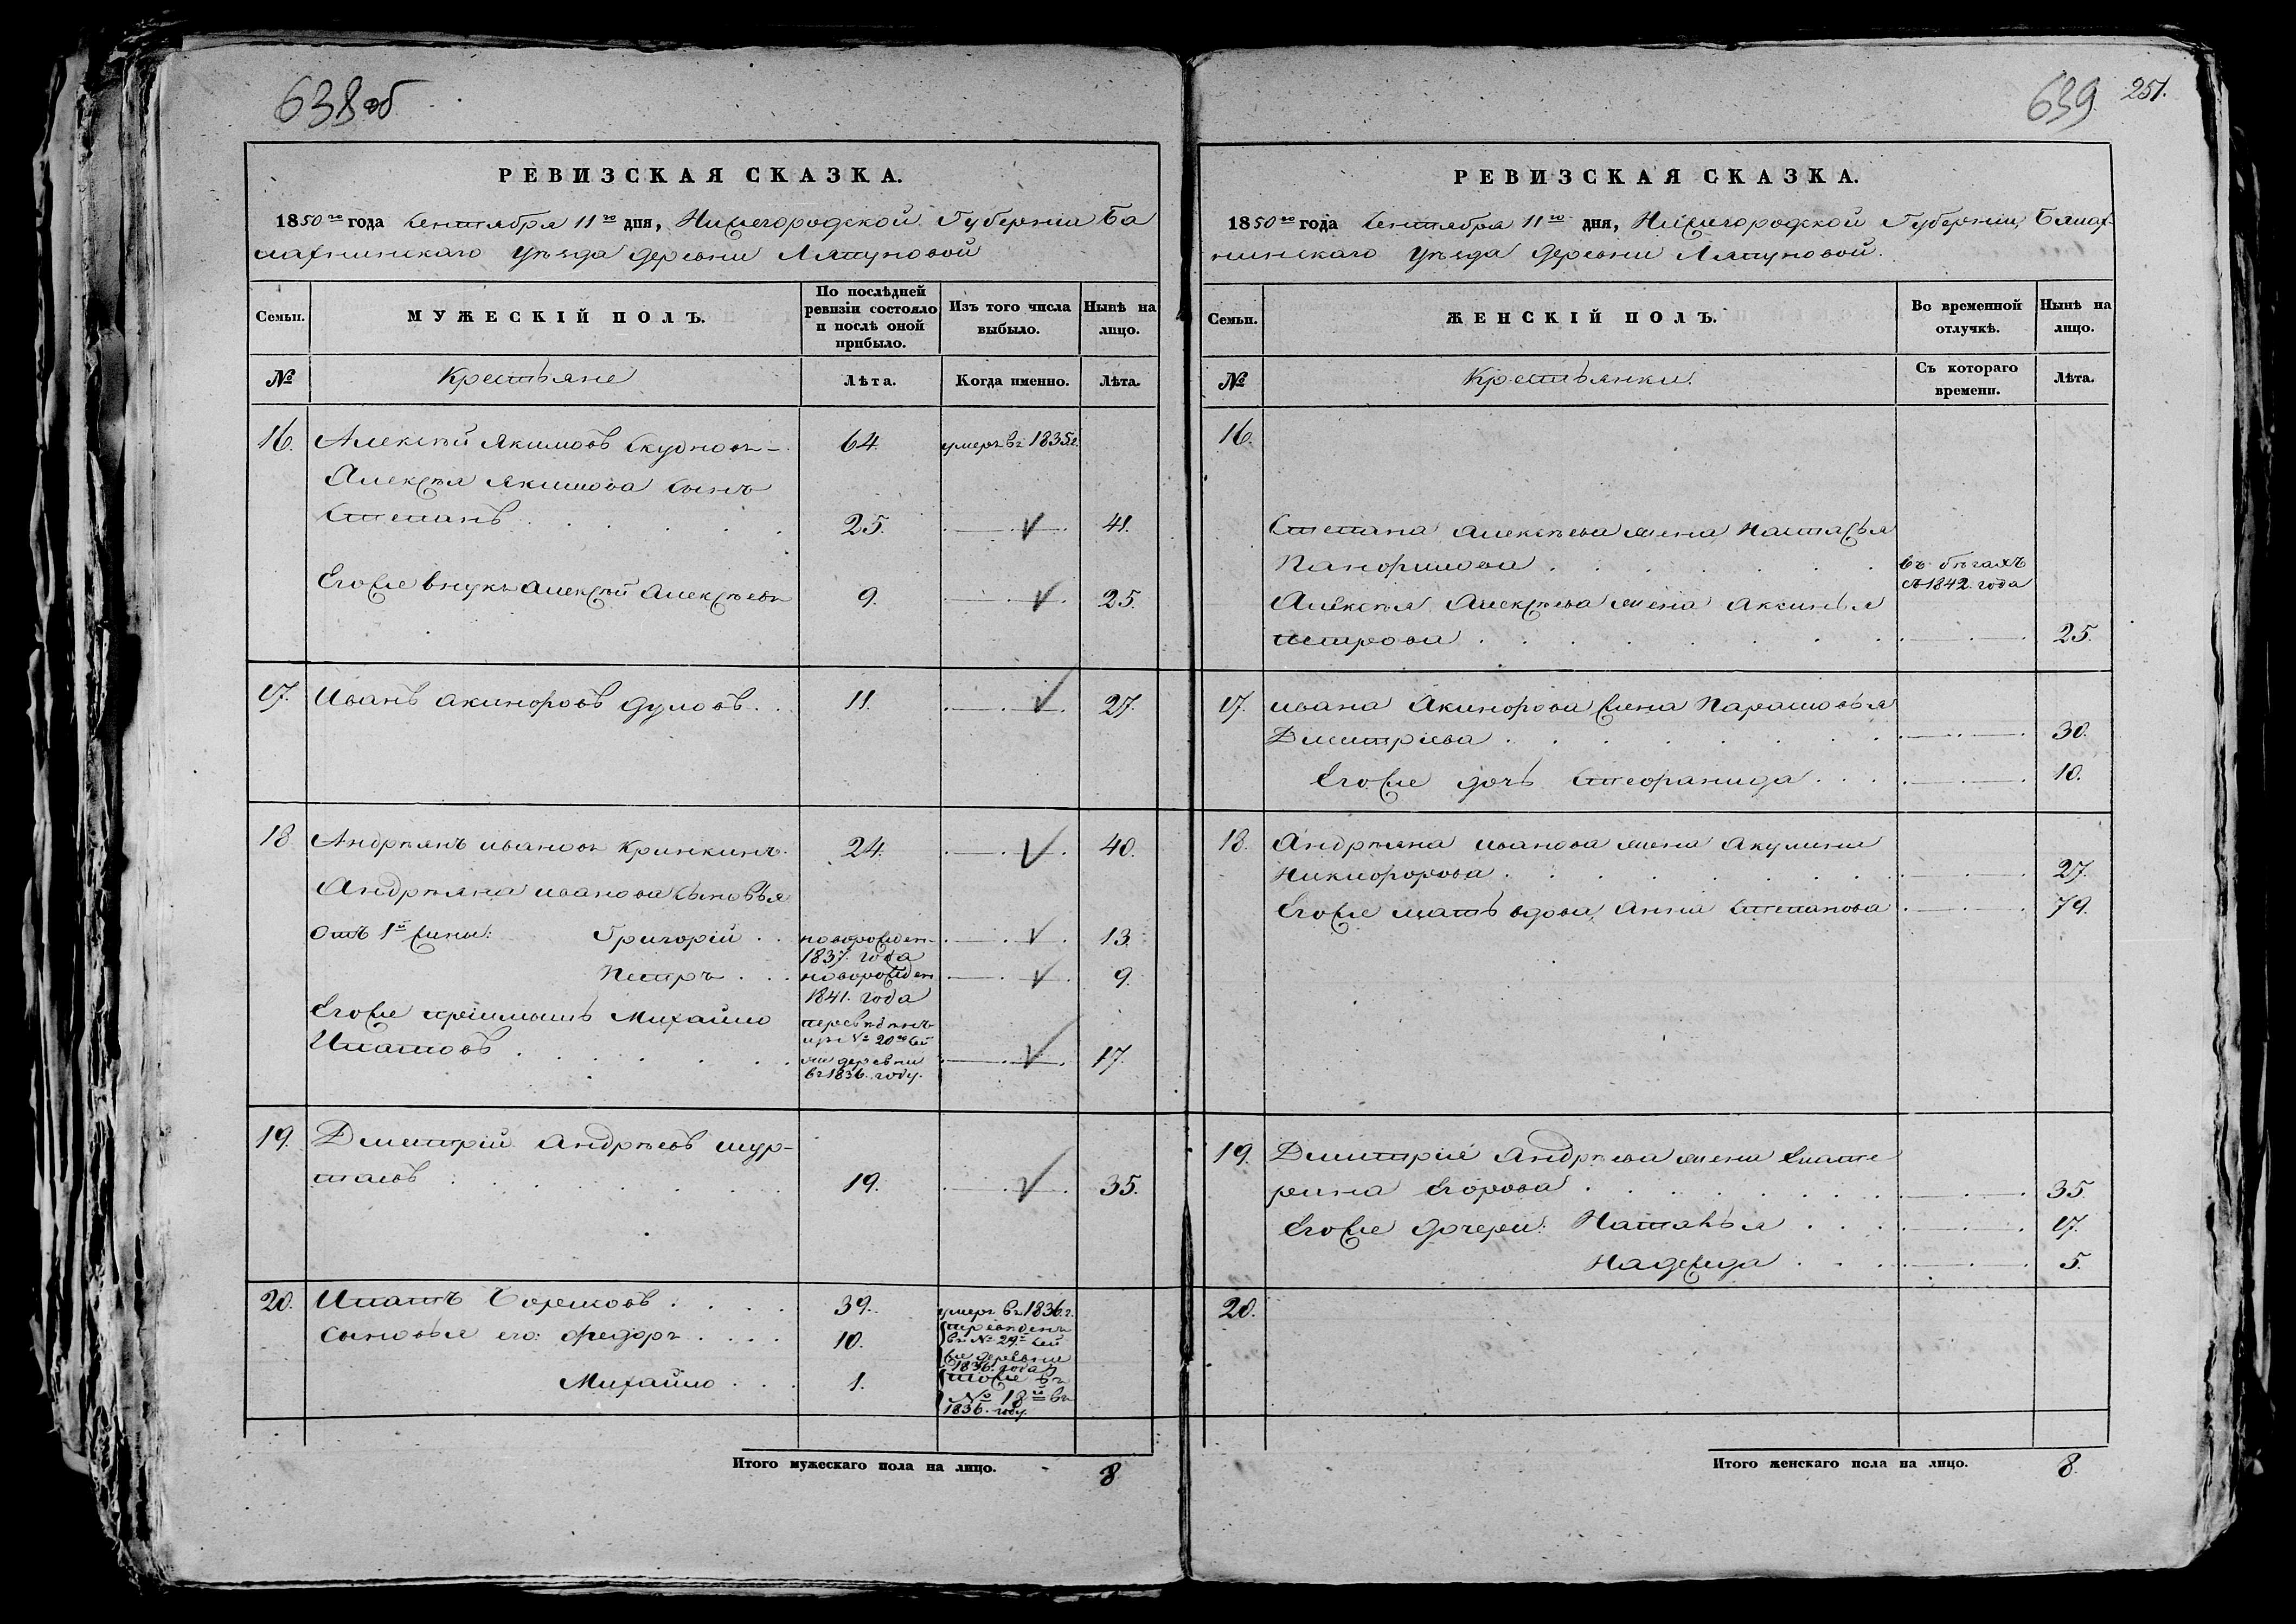 638 об
РЕВИЗСКАЯ СКАЗКА.
1850го года Сентября 11го дня, Нижегородской Губерніи Ба
лахнинскаго Уѣзда деревни Ляпуновой
Семьи.
МУЖЕСКІЙ ПОЛЪ.
По послѣдней ревизіи состояло и послѣ оной прибыло.
Изъ того числа выбыло.
Нынѣ на лицо.
№
Крестьяне
Лѣта.
Когда именно.
Лѣта.
16. Алексѣй Якимовъ Скудновъ 64 умеръ въ 1835г.
Алексѣя Якимова сынъ
Степанъ 25. 41.
Егоже внукъ Алексѣй Алексѣевъ 9. 25.
17. Иванъ Акинфовъ Дуловъ 11. 27.
18 Андрѣянъ Ивановъ Кринкинъ 24. 40.
Андрѣяна Иванова сыновья
отъ 1й жены: Григорій новорожден 13.
1837. года
Петръ новорожден 9.
1841. года
Егоже пріимышъ Михайло переведенъ
Ипатовъ изъ № 20го сей 17.
же деревни
въ 1836. году.
19. Дмитрій Андрѣевъ Шур-
таевъ 19. 35.
20. Ипатъ 39. умеръ въ 1836.г.
сыновья его: Федоръ 10. переведенъ
въ № 29й сей
же деревни
1836. года
Михайло 1. тоже въ
№ 18й въ
1836. году.
Итого мужескаго пола на лицо. 8
639 251.
РЕВИЗСКАЯ СКАЗКА.
1850го года Сентября 11го дня, Нижегородской Губерніи, Балах-
нинскаго Уѣзда деревни Ляпуновой.
Семьи.
ЖЕНСКІЙ ПОЛЪ.
Во временной отлучкѣ.
Нынѣ на лицо.
№
Крестьянки.
Съ котораго времени.
Лѣта.
16.
Степана Алексѣева жена Настасья
Панфилова въ бѣгахъ
съ 1842. года
Алексѣя Алексѣева жена Аксинья
Петрова 25.
17. Ивана Акинфова жена Парасковья
Дмитріева 30.
Егоже дочь Стефанида 10.
18. Андрѣяна Иванова жена Акулина
Никифорова 27.
Егоже мать вдова Анна Степанова 79.
19. Дмитрія Андрѣева жена Екате
рина Егорова 35.
Егоже дочери: Наталья 17.
Надежда 5.
20.
Итого женскаго пола на лицо. 8.